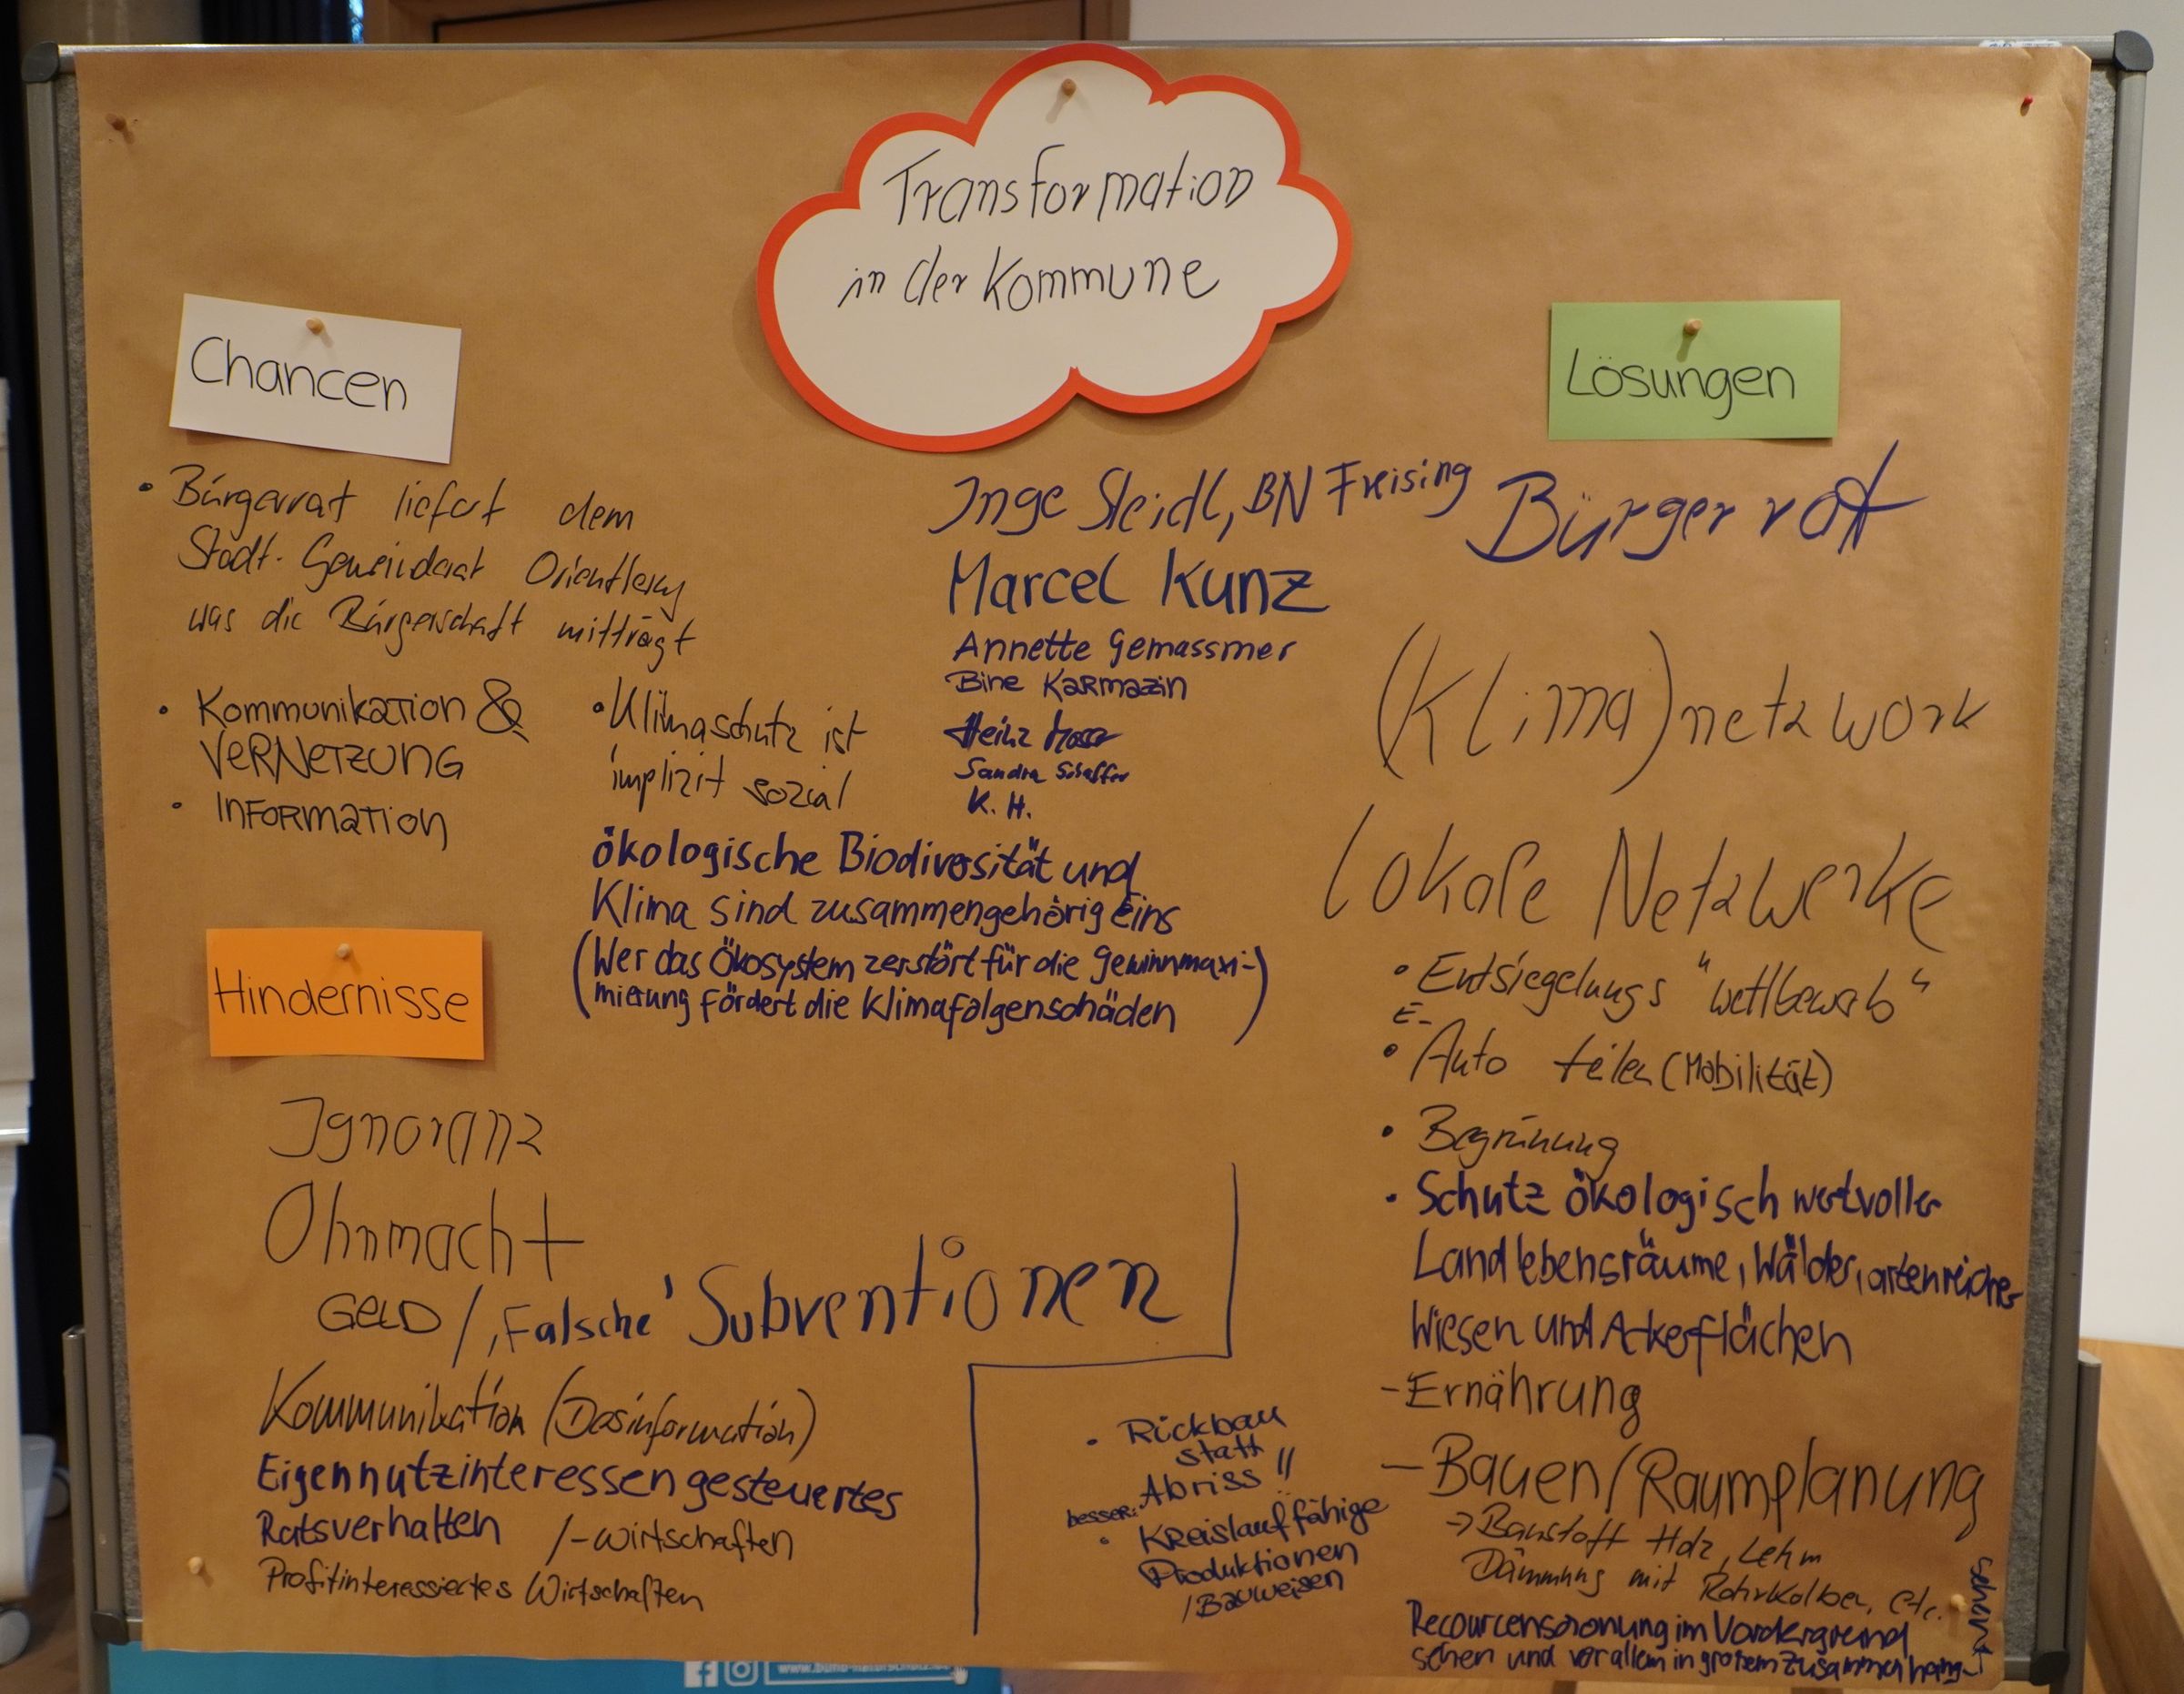 Transformation
in der Kommune
Chancen
• Bürgerrat liefert dem
Stadt- Gemeinderat Orientierung
was die Bürgerschaft mitträgt
• Kommunikation &
VERNETZUNG
• INFORMATION
• Klimaschutz ist
implizit sozial
ökologische Biodiversität und
Klima sind zusammengehörig eins
(Wer das Ökosystem zerstört für die Gewinnmaxi-
mierung fördert die Klimafolgenschäden)
Inge Steidl, BN Freising
Marcel Kunz
Annette Gemassmer
Bine Karmazin
Heinz
Sandra
K. H.
Hindernisse
Ignoranz
Ohnmacht
GELD / ,Falsche' Subventionen
Kommunikation (Desinformation)
Eigennutzinteressengesteuertes
Ratsverhalten /-wirtschaften
Profitinteressiertes Wirtschaften
• Rückbau
statt
Abriss !!
besser:
• Kreislauffähige
Produktionen
/Bauweisen
Lösungen
Bürgerrat
(Klima)netzwork
lokale Netzwerke
• Entsiegelungs "wettbewerb"
E-
• Auto teilen (Mobilität)
• Begrünung
• Schutz ökologisch wertvoller
Landlebensräume, Wälder, artenreicher
Wiesen und Ackerflächen
- Ernährung
- Bauen/Raumplanung
→ Baustoff Holz, Lehm
Dämmung mit Rohrkolben, etc.
Recourcenschonung im Vordergrund
sehen und vor allem in großem Zusammenhang